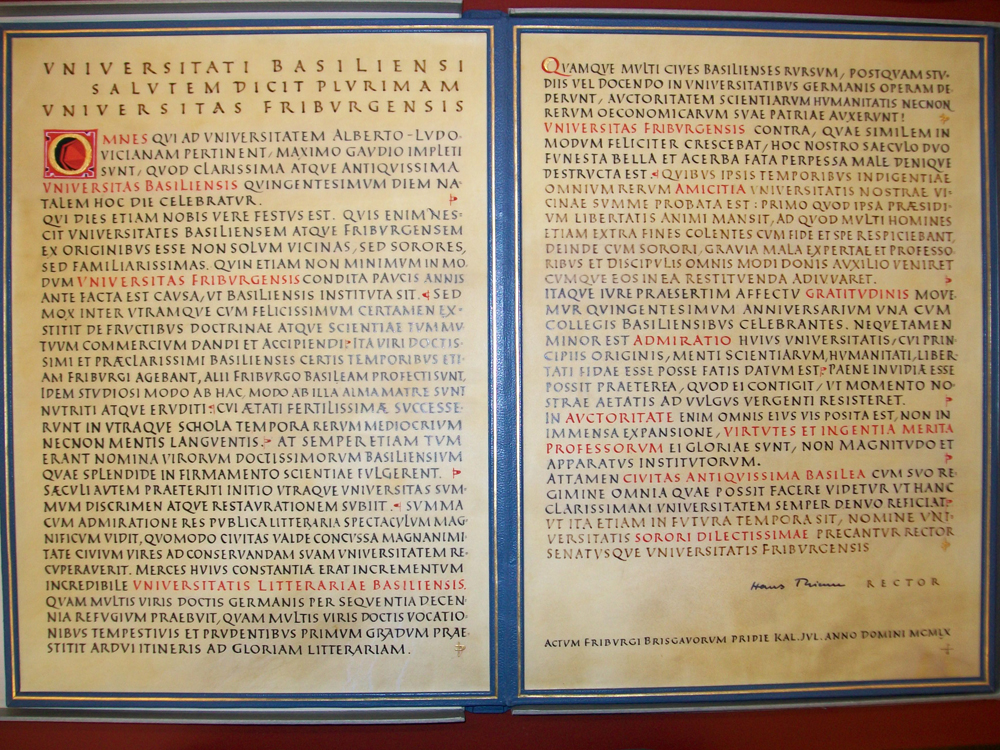 VNIVERSITATI BASILIENSI
SALVTEM DICIT PLVRIMAM
VNIVERSITAS FRIBVRGENSIS
OMNES QVI AD VNIVERSITATEM ALBERTO-LVDO-
VICIANAM PERTINENT, MAXIMO GAVDIO IMPLETI
SVNT, QVOD CLARISSIMA ATQVE ANTIQVISSIMA
VNIVERSITAS BASILIENSIS QVINGENTESIMVM DIEM NA-
TALEM HOC DIE CELEBRATVR.
QVI DIES ETIAM NOBIS VERE FESTVS EST. QVIS ENIM NES-
CIT VNIVERSITATES BASILIENSEM ATQVE FRIBVRGENSEM
EX ORIGINIBVS ESSE NON SOLVM VICINAS, SED SORORES,
SED FAMILIARISSIMAS. QVIN ETIAM NON MINIMVM IN MO-
DVM VNIVERSITAS FRIBVRGENSIS CONDITA PAVCIS ANNIS
ANTE FACTA EST CAVSA, VT BASILIENSIS INSTITVTA SIT. SED
MOX INTER VTRAMQVE CVM FELICISSIMVM CERTAMEN EX-
STITIT DE FRVCTIBVS DOCTRINAE ATQVE SCIENTIAE TVM MV-
TVVM COMMERCIVM DANDI ET ACCIPIENDI: ITA VIRI DOCTIS-
SIMI ET PRÆCLARISSIMI BASILIENSES CERTIS TEMPORIBVS ETI-
AM FRIBVRGI AGEBANT, ALII FRIBVRGO BASILEAM PROFECTI SVNT,
IDEM STVDIOSI MODO AB HAC, MODO AB ILLA ALMA MATRE SVNT
NVTRITI ATQVE ERVDITI: CVI ÆTATI FERTILISSIMÆ SVCCESSE-
RVNT IN VTRAQVE SCHOLA TEMPORA RERVM MEDIOCRIVM
NECNON MENTIS LANGVENTIS. AT SEMPER ETIAM TVM
ERANT NOMINA VIRORVM DOCTISSIMORVM BASILIENSIVM
QVAE SPLENDIDE IN FIRMAMENTO SCIENTIAE FVLGERENT.
SÆCVLI AVTEM PRAETERITI INITIO VTRAQVE VNIVERSITAS SVM-
MVM DISCRIMEN ATQVE RESTAVRATIONEM SVBIIT. SVMMA
CVM ADMIRATIONE RES PVBLICA LITTERARIA SPECTACVLVM MAG-
NIFICVM VIDIT, QVOMODO CIVITAS VALDE CONCVSSA MAGNANIMI-
TATE CIVIVM VIRES AD CONSERVANDAM SVAM VNIVERSITATEM RE-
CVPERAVERIT. MERCES HVIVS CONSTANTIÆ ERAT INCREMENTVM
INCREDIBILE VNIVERSITATIS LITTERARIAE BASILIENSIS.
QVAM MVLTIS VIRIS DOCTIS GERMANIS PER SEQVENTIA DECEN-
NIA REFVGIVM PRAEBVIT, QVAM MVLTIS VIRIS DOCTIS VOCATIO-
NIBVS TEMPESTIVIS ET PRVDENTIBVS PRIMVM GRADVM PRAE-
STITIT ARDVI ITINERIS AD GLORIAM LITTERARIAM.
QVAMQVE MVLTI CIVES BASILIENSES RVRSVM, POSTQVAM STV-
DIIS VEL DOCENDO IN VNIVERSITATIBVS GERMANIS OPERAM DE-
DERVNT, AVCTORITATEM SCIENTIARVM HVMANITATIS NECNON
RERVM OECONOMICARVM SVAE PATRIAE AVXERVNT!
VNIVERSITAS FRIBVRGENSIS CONTRA, QVAE SIMILEM IN
MODVM FELICITER CRESCEBAT, HOC NOSTRO SAECVLO DVO
FVNESTA BELLA ET ACERBA FATA PERPESSA MALE DENIQVE
DESTRVCTA EST. QVIBVS IPSIS TEMPORIBVS INDIGENTIAE
OMNIVM RERVM AMICITIA VNIVERSITATIS NOSTRAE VI-
CINAE SVMME PROBATA EST: PRIMO QVOD IPSA PRÆSIDI-
VM LIBERTATIS ANIMI MANSIT, AD QVOD MVLTI HOMINES
ETIAM EXTRA FINES COLENTES CVM FIDE ET SPE RESPICIEBANT,
DEINDE CVM SORORI, GRAVIA MALA EXPERTAE ET PROFESSO-
RIBVS ET DISCIPVLIS OMNIS MODI DONIS AVXILIO VENIRET
CVMQVE EOS IN EA RESTITVENDA ADIVVARET.
ITAQVE IVRE PRAESERTIM AFFECTV GRATITVDINIS MOVE-
MVR QVINGENTESIMVM ANNIVERSARIVM VNA CVM
COLLEGIS BASILIENSIBVS CELEBRANTES. NEQVE TAMEN
MINOR EST ADMIRATIO HVIVS VNIVERSITATIS, CVI PRIN-
CIPIIS ORIGINIS, MENTI SCIENTIÀRVM, HVMANITATI, LIBER-
TATI FIDAE ESSE POSSE FATIS DATVM EST: PAENE INVIDIÆ ESSE
POSSIT PRAETEREA, QVOD EI CONTIGIT, VT MOMENTO NO-
STRAE AETATIS AD VVLGVS VERGENTI RESISTERET.
IN AVCTORITATE ENIM OMNIS EIVS VIS POSITA EST, NON IN
IMMENSA EXPANSIONE, VIRTVTES ET INGENTIA MERITA
PROFESSORVM EI GLORIAE SVNT, NON MAGNITVDO ET
APPARATVS INSTITVTORVM.
ATTAMEN CIVITAS ANTIQVISSIMA BASILEA CVM SVO RE-
GIMINE OMNIA QVAE POSSIT FACERE VIDETVR VT HANC
CLARISSIMAM VNIVERSITATEM SEMPER DENVO REFICIAT:
VT ITA ETIAM IN FVTVRA TEMPORA SIT, NOMINE VNI-
VERSITATIS SORORI DILECTISSIMAE PRECANTVR RECTOR
SENATVSQVE VNIVERSITATIS FRIBVRGENSIS
Hans Thieme RECTOR
ACTVM FRIBVRGI BRISGAVORVM PRIDIE KAL. JVL. ANNO DOMINI MCMLX